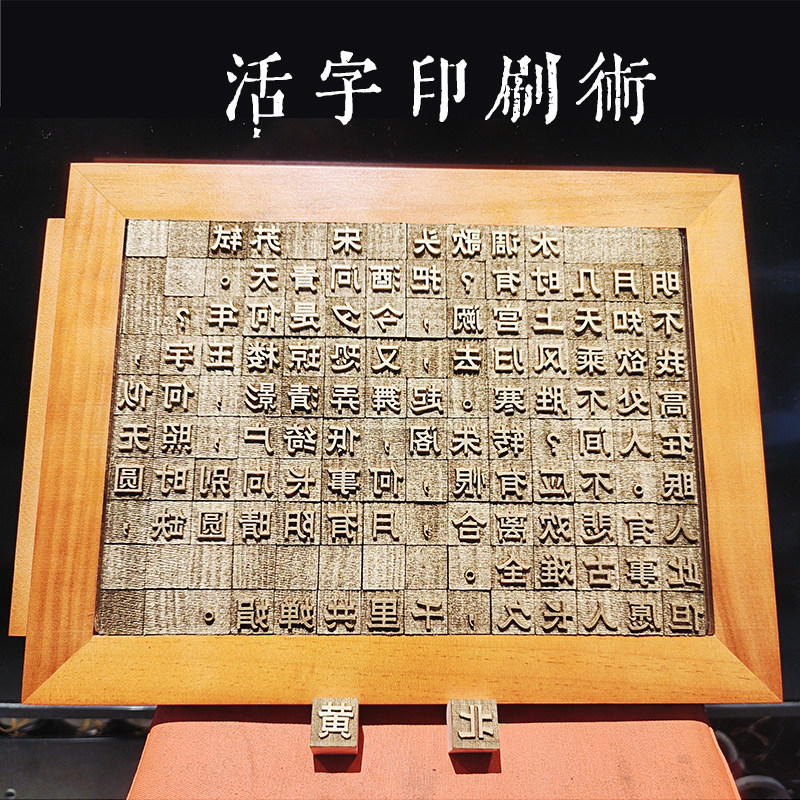 活字印刷術
水调歌头 宋 苏轼
明月几时有？把酒问青天。
不知天上宫阙，今夕是何年？
我欲乘风归去，又恐琼楼玉宇，
高处不胜寒。起舞弄清影，何似
在人间？转朱阁，低绮户，照无
眠。不应有恨，何事长向别时圆
人有悲欢离合，月有阴晴圆缺，
此事古难全。
但愿人长久，千里共婵娟。
黄 北